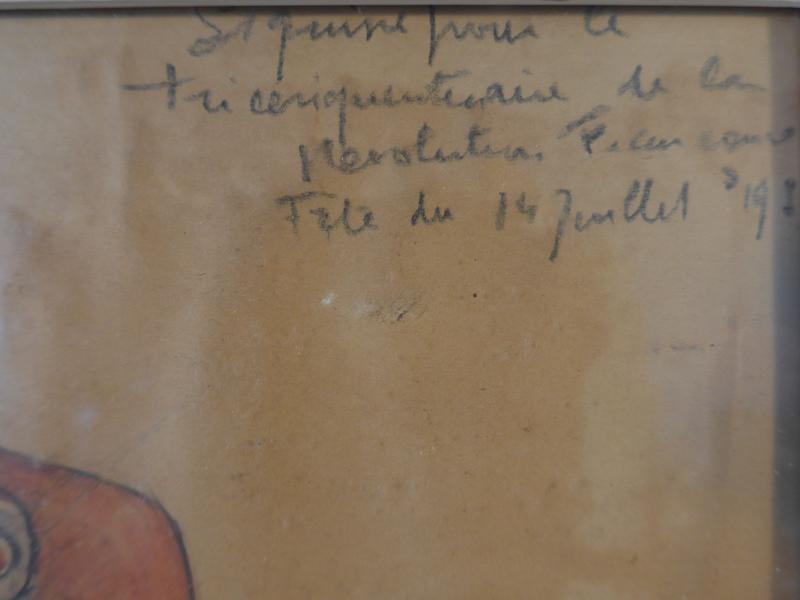 Esquisse pour le
tricenquentenaire de la
Révolution Française
Fête du 14 Juillet 193